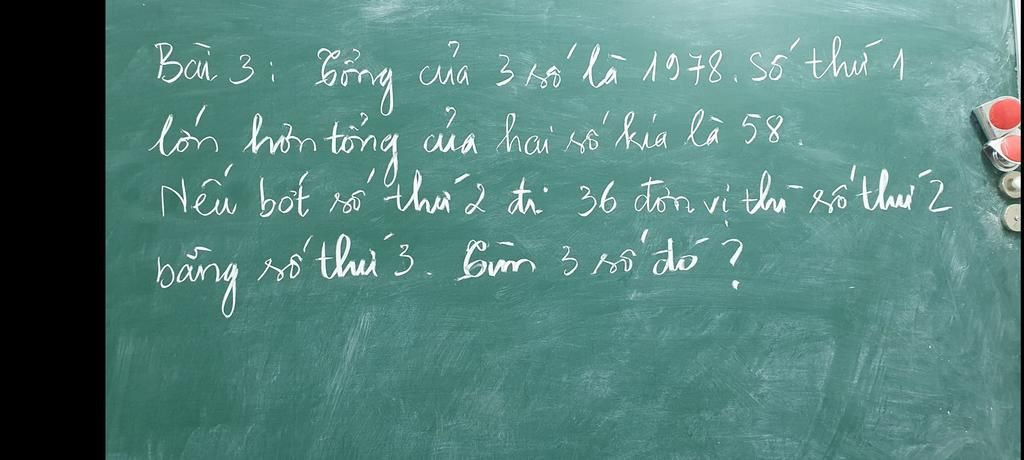 Bài 3: Tổng của 3 số là 1978. Số thứ 1
lớn hơn tổng của hai số kia là 58.
Nếu bớt số thứ 2 đi 36 đơn vị thì số thứ 2
bằng số thứ 3. Tìm 3 số đó?